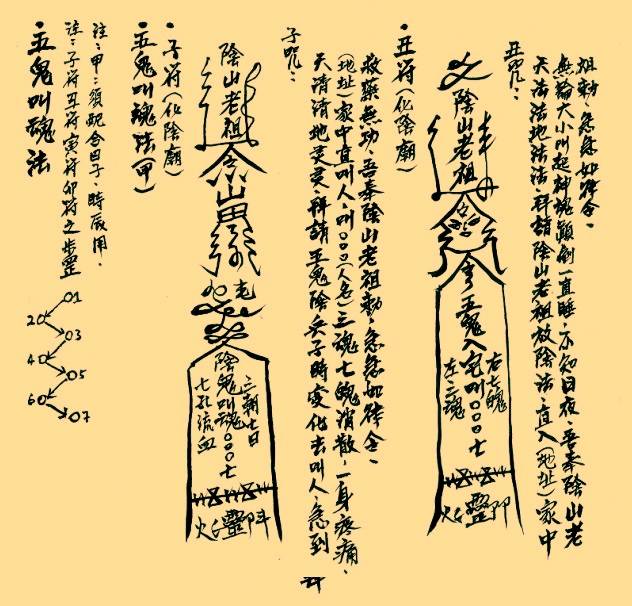 •五鬼叫魂法
注:子符丑符寅符卯符之步罡
注:甲:須配合日子,時辰用.
01
20
03
40
05
60
07
•五鬼叫魂法(甲)
•子符(化陰廟)
陰山老祖
七孔流血
陰鬼叫魂○○○七
三朝七日
靈
子咒:
天清清地灵灵,拜請五鬼陰兵子時变化去叫人,急到
(地址)家中直叫人,叫○○○(人名)三魂七魄消散,一身疼痛,
救藥無功,吾奉陰山老祖勅,急急如律令。
•丑符(化陰廟)
陰山老祖
左三魂
五鬼入宅叫○○○七
右七魄
靈
丑咒:
天法法地法法,拜請陰山老祖放陰法,直入(地址)家中
無論大小叫起神魂顛倒一直睡,不知日夜,吾奉陰山老
祖勅,急急如律令。